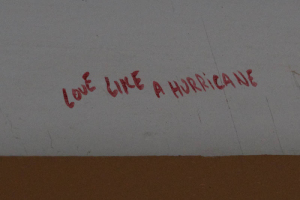 LOVE LIKE A HURRiCANE